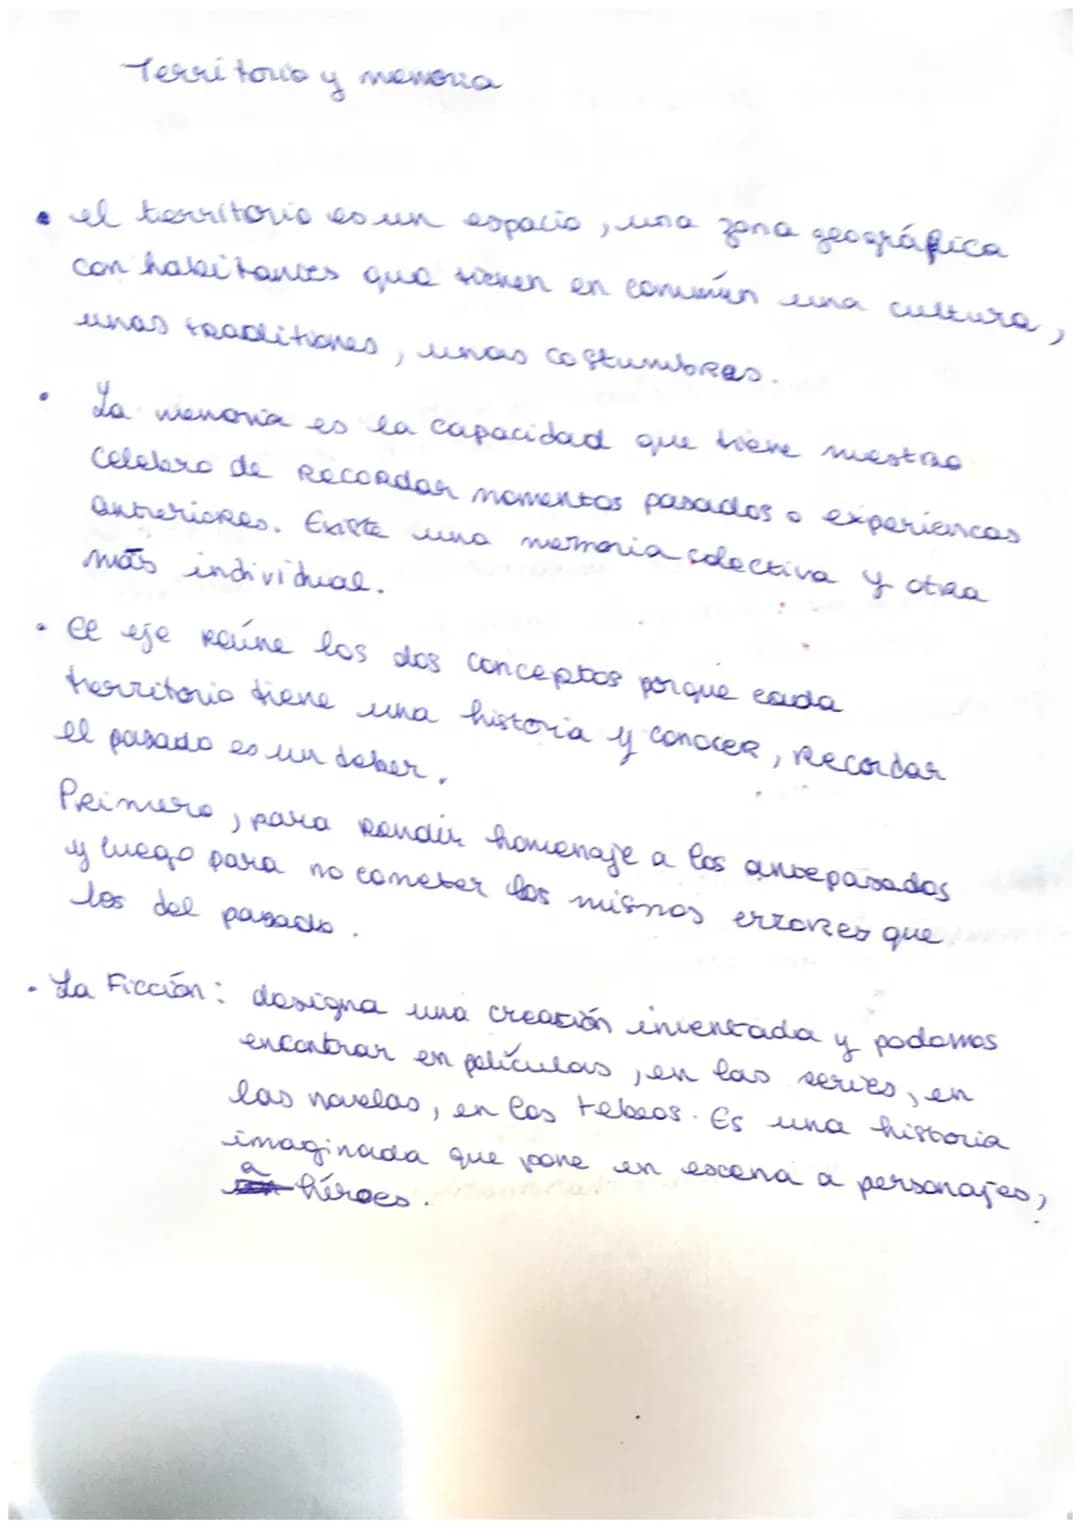 Territorio y memoria
• el territorio es un espacio, una zona geográfica
con habitantes que tienen en commún una cultura,
unas traditiones, unas costumbres.
• La memoria es la capacidad que tiene nuestro
celebro de recordar momentos pasados o experiencas
anteriores. Existe una memoria colectiva y otra
más individual.
• El eje reúne los dos conceptos porque cada
territorio tiene una historia y conocer, recordar
el pasado es un deber.
Primero, para rendir homenaje a los antepasados
y luego para no cometer los mismos errores que
los del pasado.
• La Ficción: designa una creación inventada y podemos
encontrar en películas, en las series, en
las novelas, en los tebeos. Es una historia
imaginada que pone en escena a personajes,
a héroes.